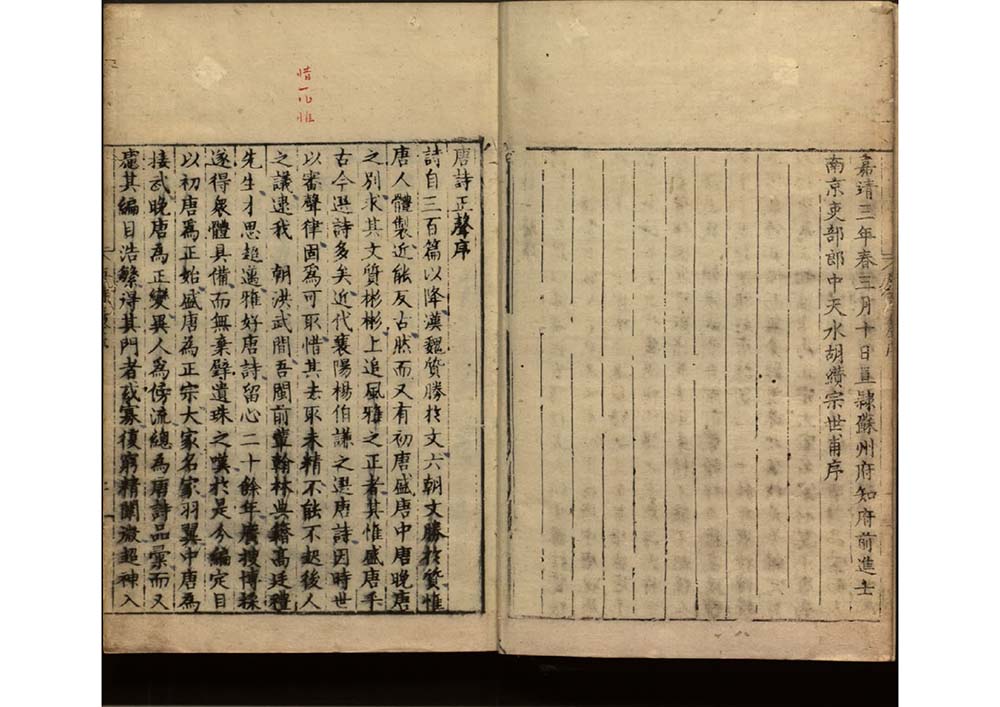 嘉靖三年春三月十日直隷蘇州府知府前進士
南京吏部郎中天水胡纘宗世甫序
惜一凡惟
唐詩正聲序
詩自三百篇以降漢魏質勝於文六朝文勝於質惟
唐人體製近能反古然而又有初唐盛唐中唐晚唐
之別求其文質彬彬上追風雅之正者其惟盛唐乎
古今選詩多矣近代襄陽楊伯謙之選唐詩因時世
以審聲律固爲可取惜其去取未精不能不起後人
之議逮我 朝洪武間吾閩前輩翰林典籍高廷禮
先生才思超邁雅好唐詩留心二十餘年廣搜博採
遂得衆體具備而無棄璧遺珠之嘆於是今編定目
以初唐爲正始盛唐為正宗大家名家羽翼中唐為
接武晚唐為正變異人爲傍流總為唐詩品彙而又
慮其編目浩繁得其門者或寡復窮精闡微超神入